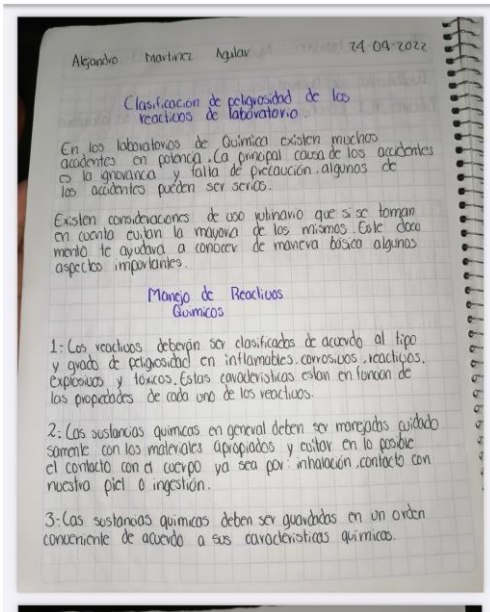 Alejandro Martinez Aguilar 24-09-2022
Clasificacion de peligrosidad de los
reacticos de laboratorio
En los laboratorios de Quimica existen muchos
accidentes en potencia. La principal causa de los accidentes
es la ignorancia y falta de precaución. algunos de
los accidentes pueden ser serios.
Existen consideraciones de uso rutinario que si se toman
en cuenta evitan la mayoria de los mismos. Este docu
mento te ayudara a conocer de manera básica algunos
aspectos importantes.
Manejo de Reactivos
Quimicos
1: Los reactivos deberán ser clasificados de acuerdo al tipo
y grado de peligrosidad en inflamables. corrosivos, reactivos.
explosivos y toxicos. Estas caracteristicas estan en funcion de
las propiedades de cada uno de los reactivos.
2: Las sustancias quimicas en general deben ser manejadas cuidado
samente con los materiales apropiados y evitar en lo posible
el contacto con el cuerpo ya sea por: inhalación, contacto con
nuestra piel o ingestión.
3: Las sustancias quimicas deben ser guardadas en un orden
conveniente de acuerdo a sus caracteristicas quimicas.